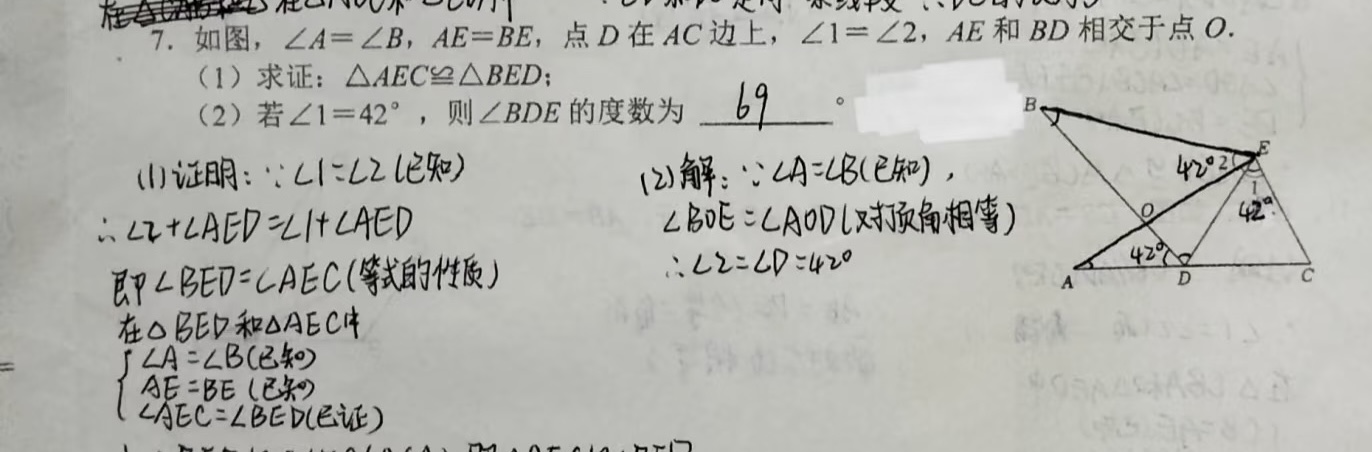 7. 如图，∠A＝∠B，AE＝BE，点 D 在 AC 边上，∠1＝∠2，AE 和 BD 相交于点 O.
（1）求证：△AEC≌△BED；
（2）若∠1＝42°，则∠BDE 的度数为 69 °
(1)证明：∵∠1=∠2(已知)
∴∠2+∠AED=∠1+∠AED
即∠BED=∠AEC(等式的性质)
在△BED和△AEC中
∠A=∠B(已知)
AE=BE(已知)
∠AEC=∠BED(已证)
(2)解：∵∠A=∠B(已知)，
∠BOE=∠AOD(对顶角相等)
∴∠2=∠D=42°
B
E
42° 2
1
42°
O
42°
A
D
C